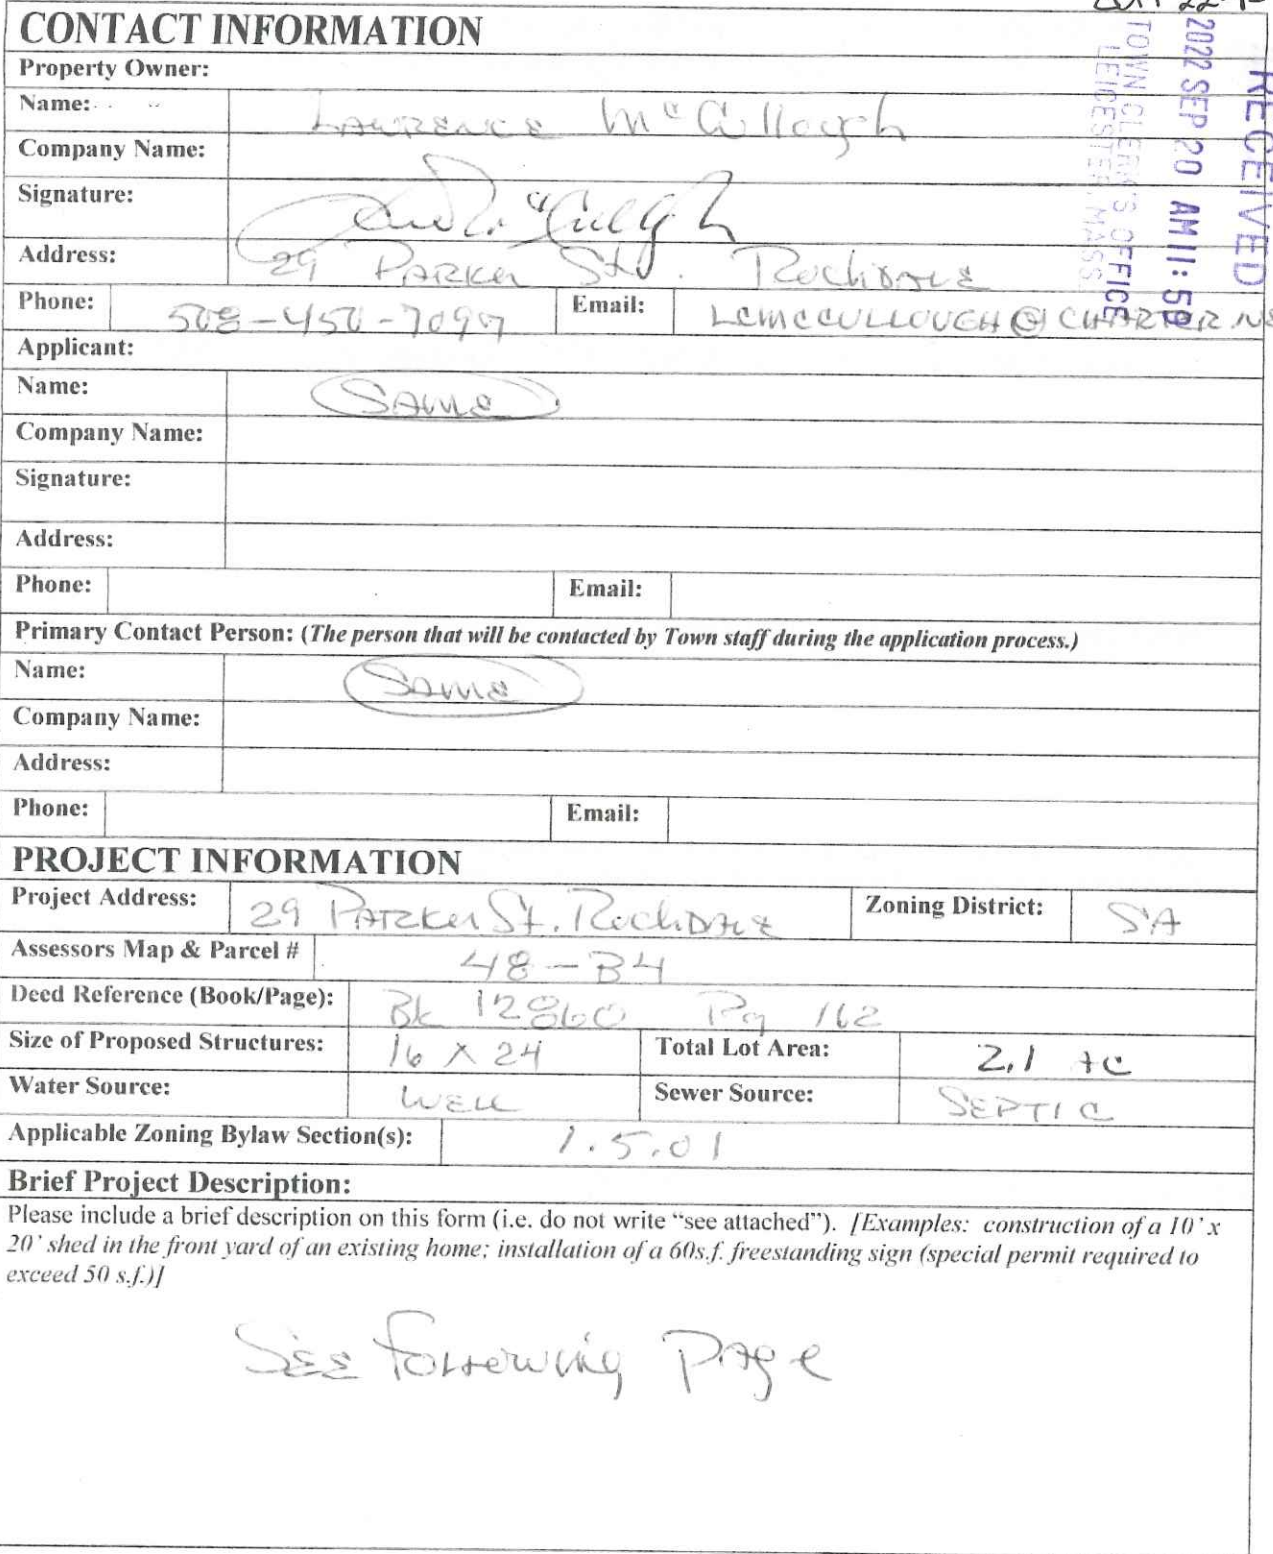 CONTACT INFORMATION
Property Owner:
Name: LAWRENCE McCullough
Company Name:
Signature:
Address: 29 PARKER St. Rochdale
Phone: 508-450-7097 Email: LCMCCULLOUGH@CHARTER.NE
Applicant:
Name: SAME
Company Name:
Signature:
Address:
Phone: Email:
Primary Contact Person: (The person that will be contacted by Town staff during the application process.)
Name: SAME
Company Name:
Address:
Phone: Email:
PROJECT INFORMATION
Project Address: 29 PARKER St. Rochdale Zoning District: SA
Assessors Map & Parcel # 48-B4
Deed Reference (Book/Page): Bk 12860 Pg 162
Size of Proposed Structures: 16 X 24 Total Lot Area: 2.1 AC
Water Source: WELL Sewer Source: SEPTIC
Applicable Zoning Bylaw Section(s): 1.5.01
Brief Project Description:
Please include a brief description on this form (i.e. do not write “see attached”). [Examples: construction of a 10’ x
20’ shed in the front yard of an existing home; installation of a 60s.f. freestanding sign (special permit required to
exceed 50 s.f.)]
SEE Following Page
RECEIVED
2022 SEP 20 AM 11: 59
TOWN CLERK'S OFFICE
LEICESTER MASS